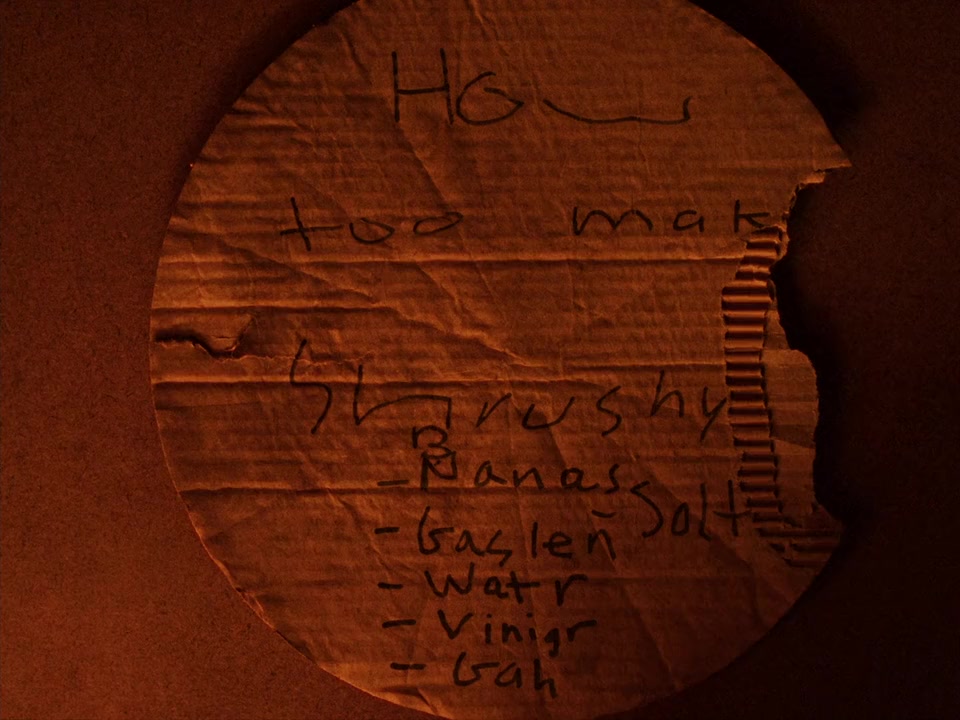 How
too mak
Shrushy
- Bananas
- Solt
- Gaslen
- Watr
- Vinigr
- Gah